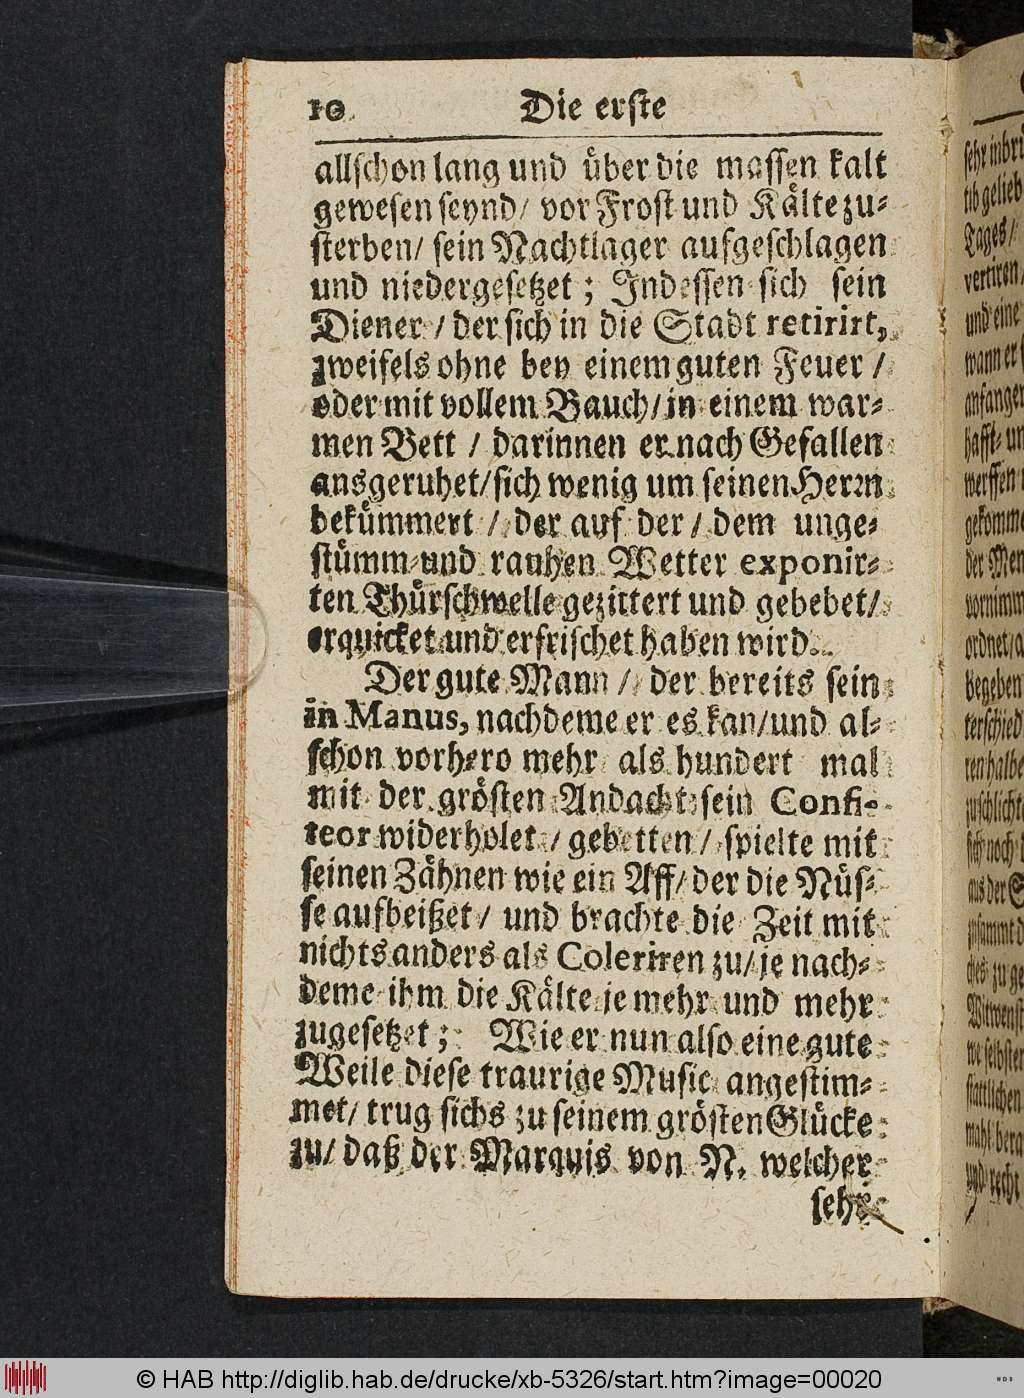 10 Die erste
allschon lang und über die massen kalt
gewesen seynd/ vor Frost und Kälte zu-
sterben/ sein Nachtlager aufgeschlagen
und niedergesetzet; Indessen sich sein
Diener / der sich in die Stadt retirirt,
zweifels ohne bey einem guten Feuer /
oder mit vollem Bauch/ in einem war-
men Bett / darinnen er nach Gefallen
ausgeruhet/ sich wenig um seinen Herrn
bekümmert / der auf der / dem unge-
stümm und rauhen Wetter exponir-
ten Thürschwelle gezittert und gebebet/
erquicket und erfrischet haben wird.
Der gute Mann / der bereits sein
in Manus, nachdeme er es kan/ und al-
schon vorhero mehr als hundert mal
mit der grösten Andacht sein Confi-
teor widerholet / gebetten / spielte mit
seinen Zähnen wie ein Aff/ der die Nüs-
se aufbeißet / und brachte die Zeit mit
nichts anders als Coleriren zu/ je nach-
deme ihm die Kälte je mehr und mehr
zugesetzet; Wie er nun also eine gute
Weile diese traurige Music angestim-
met/ trug sichs zu seinem grösten Glücke
zu/ daß der Marquis von N. welcher
sehr
sehr inbrü
tib gelieb
Tages/
vertiren
und eine
wann er
anfangen
hafft- un
werffen
gekomme
der Men
vornimm
ordnet/
begeben
terschied
ren halbe
zuschlicht
sich noch
aus der S
zusammt d
ches zu ge
Witwenst
we selbsten
stattlichen
mahl
und recht
© HAB http://diglib.hab.de/drucke/xb-5326/start.htm?image=00020